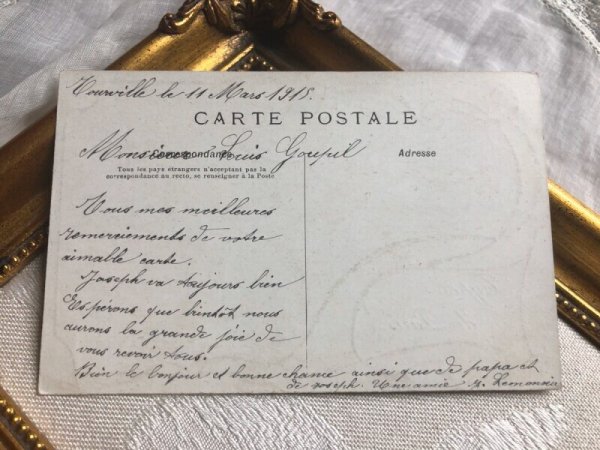 Tourville le 11 Mars 1915.
CARTE POSTALE
Monsieur Louis Goupil
Correspondance
Adresse
Tous les pays étrangers n'acceptant pas la
correspondance au recto, se renseigner à la Poste
Tous mes meilleures
remerciements de votre
aimable carte.
Joseph va toujours bien
Espérons que bientôt nous
aurons la grande joie de
vous revoir tous.
Bien le bonjour et bonne chance ainsi que de papa et
de Joseph. Une amie Lemonnier